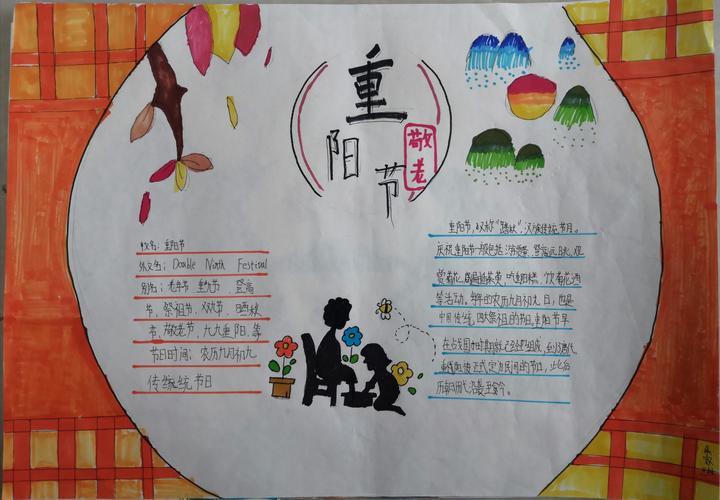 重阳节
敬老
中文名：重阳节
外文名：Double Ninth Festival
别名：老年节 重九节 登高
节、祭祖节、双九节、晒秋
节、敬老节、九九重阳、等
节日时间：农历九月初九
传统统节日
重阳节，又称“踏秋”，汉族传统节日。
庆祝重阳节一般包括 登高远眺、观
赏菊花、遍插茱萸、吃重阳糕、饮菊花酒
等活动，每年的农历九月初九日，也是
中国传统四大祭祖的节日，重阳节早
在战国时期就已经形成，到了唐代
重阳被正式定为民间的节日，此后
历朝历代沿袭至今。